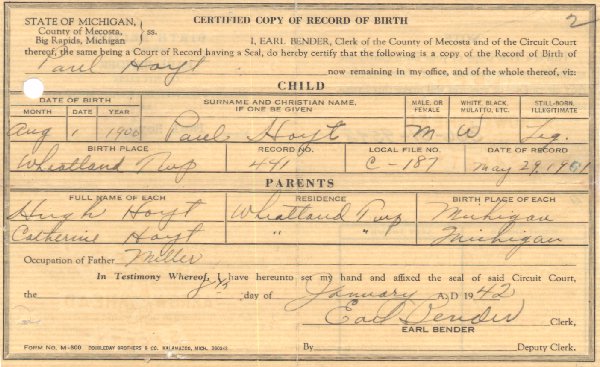 STATE OF MICHIGAN,
County of Mecosta, ss.
Big Rapids, Michigan
CERTIFIED COPY OF RECORD OF BIRTH
2
I, EARL BENDER, Clerk of the County of Mecosta and of the Circuit Court
thereof, the same being a Court of Record having a Seal, do hereby certify that the following is a copy of the Record of Birth of
Paul Hoyt now remaining in my office, and of the whole thereof, viz:
CHILD
DATE OF BIRTH SURNAME AND CHRISTIAN NAME, IF ONE BE GIVEN MALE, OR FEMALE WHITE, BLACK, MULATTO, ETC. STILL-BORN, ILLEGITIMATE
MONTH DATE YEAR
Aug 1 1900 Paul Hoyt M W Leg.
BIRTH PLACE RECORD NO. LOCAL FILE NO. DATE OF RECORD
Wheatland Twp 441 C-187 May 29, 1901
PARENTS
FULL NAME OF EACH RESIDENCE BIRTH PLACE OF EACH
Hugh Hoyt Wheatland Twp Michigan
Catherine Hoyt " " Michigan
Occupation of Father Miller
In Testimony Whereof, I have hereunto set my hand and affixed the seal of said Circuit Court,
the 8th day of January A. D. 1942
Earl Bender Clerk,
EARL BENDER
FORM NO. M-800 DOUBLEDAY BROTHERS & CO. KALAMAZOO, MICH. By Deputy Clerk.